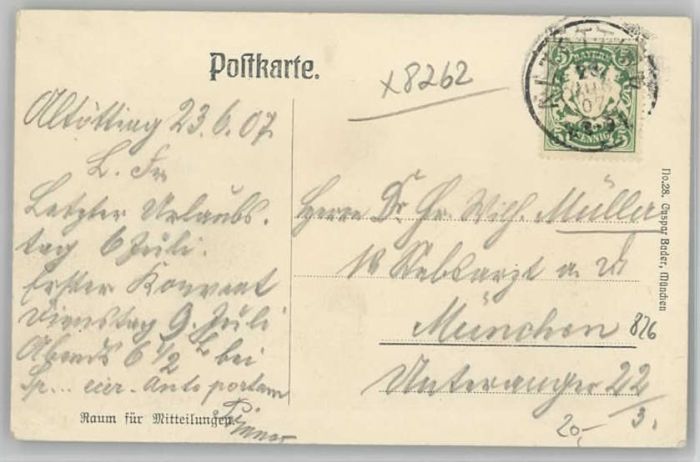 Postkarte.
x8262
5 BAYERN 5
5 PFENNIG 5
Altötting 23.6.07
L. Fr
Letzter Urlaubs-
tag 6 Juli.
Erster Konvent
Dienstag 9. Juli
Abends 6 1/2 h bei
Sp... eier. Ante portam
Raum für Mitteilungen.
Herrn Dr. Gr. Wilh. Müller
a. D.
München 826
Unteranger 22/3.
20,-
No. 28. Caspar Bader, München